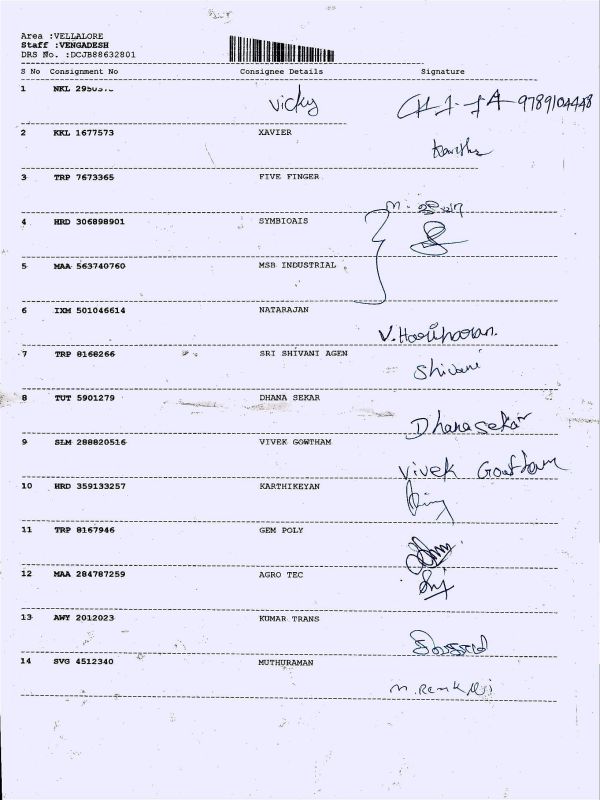 Area :VELLALORE
Staff :VENGADESH
DRS No. :DCJB88632801
S No Consignment No Consignee Details Signature
1 NKL Vicky 9789104448
2 KKL 1677573 XAVIER
Kavitha
3 TRP 7673365 FIVE FINGER
4 HRD 306898901 SYMBIOAIS
5 MAA 563740760 MSB INDUSTRIAL
6 IXM 501046614 NATARAJAN
V. Hariharan.
7 TRP 8168266 SRI SHIVANI AGEN
Shivani
8 TUT 5901279 DHANA SEKAR
Dhanasekar
9 SLM 288820516 VIVEK GOWTHAM
Vivek Goutham
10 HRD 359133257 KARTHIKEYAN
11 TRP 8167946 GEM POLY
12 MAA 284787259 AGRO TEC
13 AWY 2012023 KUMAR TRANS
14 SVG 4512340 MUTHURAMAN